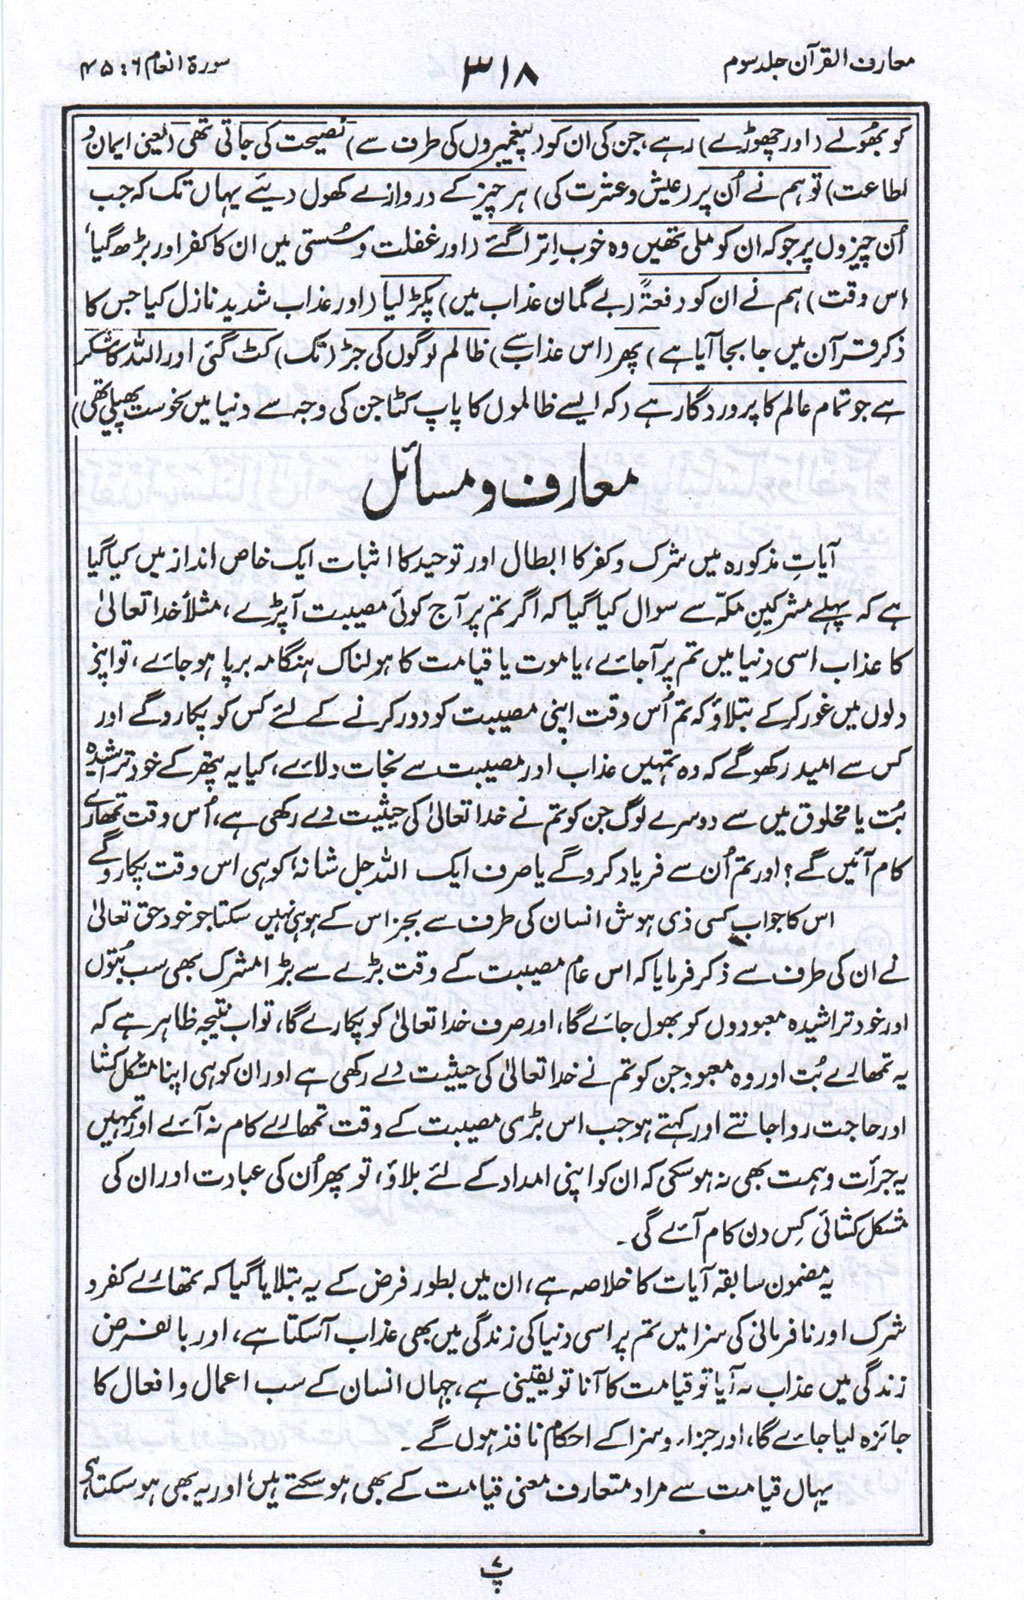 معارف القرآن جلد سوم
۳۱۸
سورۃ انعام ۶ : ۴۵
کو بھُولے (اور چھوڑے) رہے، جن کی ان کو (پیغمبروں کی طرف سے) نصیحت کی جاتی تھی (یعنی ایمان و
اطاعت) تو ہم نے اُن پر (عیش و عشرت کی) ہر چیز کے دروازے کھول دیئے یہاں تک کہ جب
اُن چیزوں پر جو کہ ان کو ملی تھیں وہ خوب اِترا گئے (اور غفلت و سُستی میں ان کا کفر اور بڑھ گیا،
اس وقت) ہم نے ان کو دفعۃً (بے گمان عذاب میں) پکڑ لیا (اور عذاب شدید نازل کیا جس کا
ذکر قرآن میں جا بجا آیا ہے) پھر (اس عذاب سے) ظالم لوگوں کی جڑ (تک) کٹ گئی اور اللہ کا شکر
ہے جو تمام عالم کا پروردگار ہے (کہ ایسے ظالموں کا پاپ کٹا جن کی وجہ سے دنیا میں نحوست پھیلتی تھی)
معارف و مسائل
آیاتِ مذکورہ میں شرک و کفر کا ابطال اور توحید کا اثبات ایک خاص انداز میں کیا گیا
ہے کہ پہلے مشرکینِ مکہ سے سوال کیا گیا کہ اگر تم پر آج کوئی مصیبت آپڑے، مثلاً خدا تعالیٰ
کا عذاب اسی دنیا میں تم پر آجائے، یا موت یا قیامت کا ہولناک ہنگامہ برپا ہوجائے، تو اپنے
دلوں میں غور کرکے بتلاؤ کہ تم اُس وقت اپنی مصیبت کو دور کرنے کے لئے کس کو پکارو گے اور
کس سے امید رکھو گے کہ وہ تمہیں عذاب اور مصیبت سے نجات دلائے، کیا یہ پتھر کے خود تراشیدہ
بُت یا مخلوق میں سے دوسرے لوگ جن کو تم نے خدا تعالیٰ کی حیثیت دے رکھی ہے، اُس وقت تمھارے
کام آئیں گے؟ اور تم اُن سے فریاد کرو گے یا صرف ایک اللہ جل شانہٗ کو ہی اس وقت پکارو گے
اس کا جواب کسی ذی ہوش انسان کی طرف سے بجز اس کے ہو ہی نہیں سکتا جو خود حق تعالیٰ
نے ان کی طرف سے ذکر فرمایا کہ اس عام مصیبت کے وقت بڑے سے بڑا مشرک بھی سب بُتوں
اور خود تراشیدہ معبودوں کو بھول جائے گا، اور صرف خدا تعالیٰ کو پکارے گا، تو اب نتیجہ ظاہر ہے کہ
یہ تمھارے بُت اور وہ معبود جن کو تم نے خدا تعالیٰ کی حیثیت دے رکھی ہے اور ان کو ہی اپنا مشکل کشا
اور حاجت روا جانتے اور کہتے ہو جب اس بڑی مصیبت کے وقت تمھارے کام نہ آئے اور تمہیں
یہ جرأت و ہمت بھی نہ ہو سکی کہ ان کو اپنی امداد کے لئے بلاؤ، تو پھر اُن کی عبادت اور ان کی
مشکل کشائی کِس دن کام آئے گی۔
یہ مضمون سابقہ آیات کا خلاصہ ہے، ان میں بطور فرض کے یہ بتلایا گیا کہ تمھارے کفر و
شرک اور نافرمانی کی سزا میں تم پر اسی دنیا کی زندگی میں بھی عذاب آسکتا ہے، اور بالفرض
زندگی میں عذاب نہ آیا تو قیامت کا آنا تو یقینی ہے، جہاں انسان کے سب اعمال و افعال کا
جائزہ لیا جائے گا، اور جزاء و سزا کے احکام نافذ ہوں گے۔
یہاں قیامت سے مراد متعارف معنی قیامت کے بھی ہو سکتے ہیں، اور یہ بھی ہو سکتا ہے